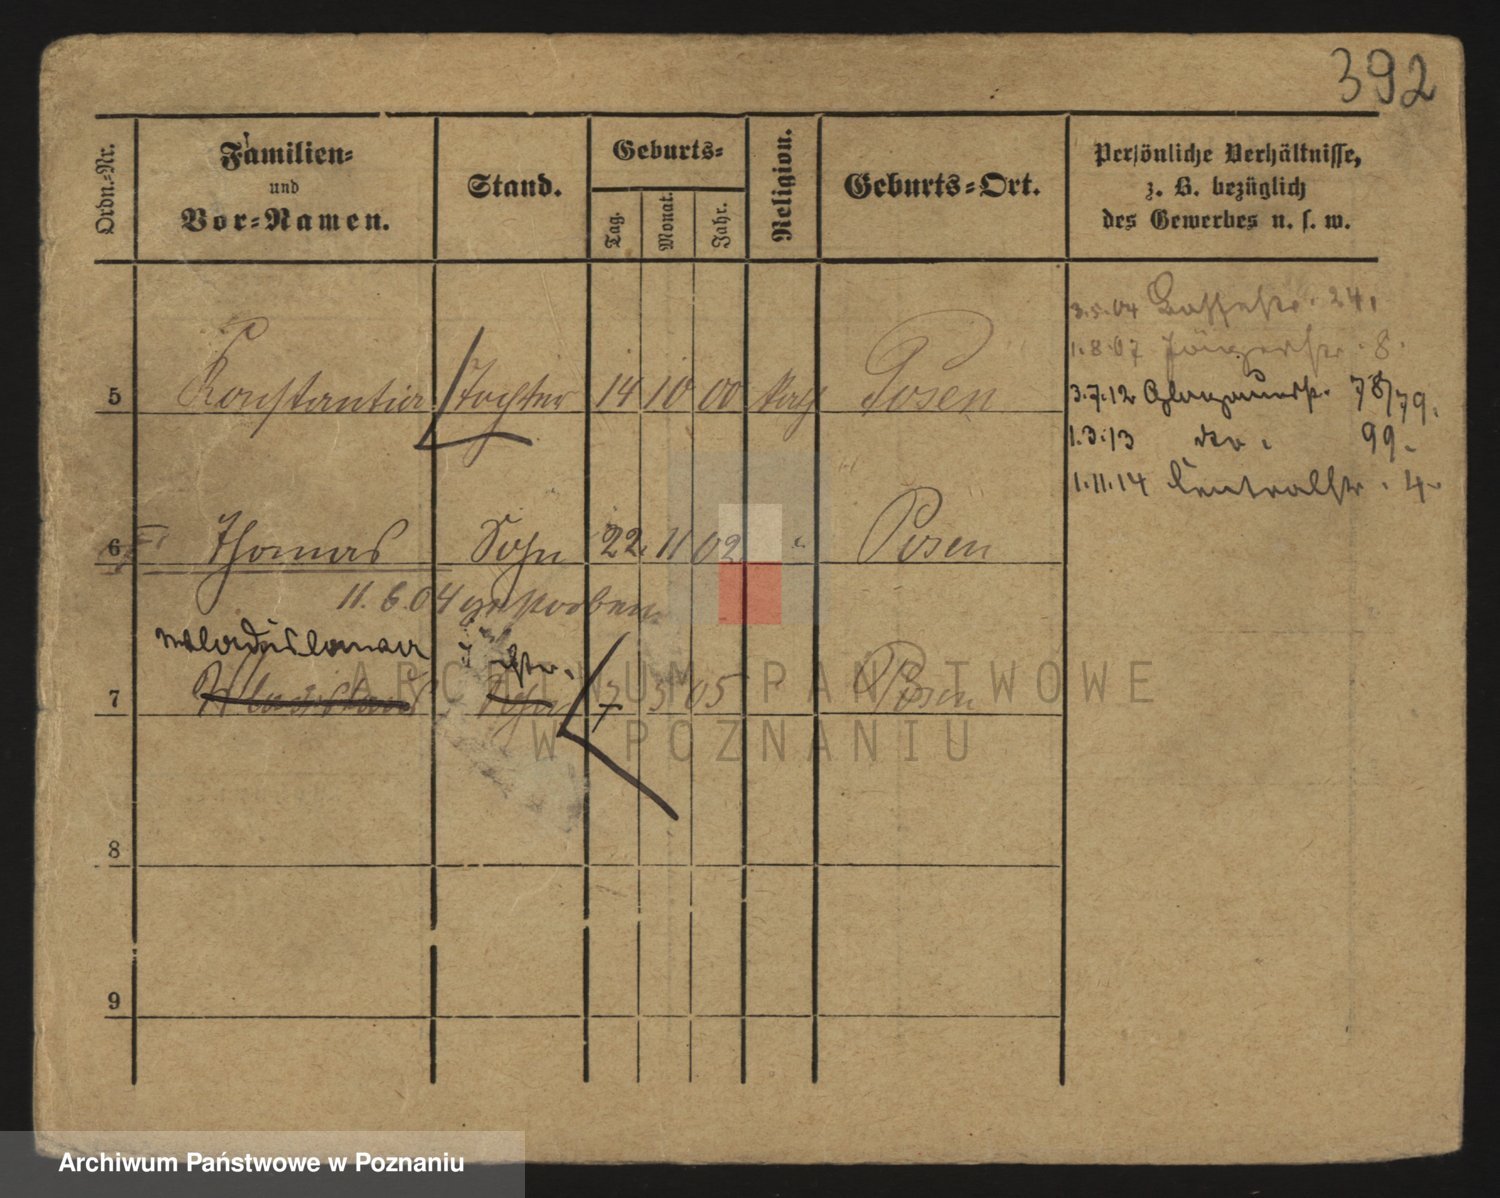 392
Ordn.-Nr.
Familien-
und
Vor-Namen.
Stand.
Geburts-
Tag.
Monat.
Jahr.
Religion.
Geburts-Ort.
Persönliche Verhältnisse,
z. B. bezüglich
des Gewerbes u. s. w.
3.5.04 24.
1.8.07 Jägerstr. 8.
5 Konstantia Tochter 14 10 00 kath Posen
3.7.12 78/79.
1.3.13 dto. 99.
1.11.14 Centralstr. 4.
6 Thomas Sohn 22. 11 02 " Posen
11.6.04 gestorben
Wladislawa Tochter.
7 Wladislaus Sohn 7 3 05 Posen
8
9
ARCHIWUM PAŃSTWOWE
W POZNANIU
Archiwum Państwowe w Poznaniu